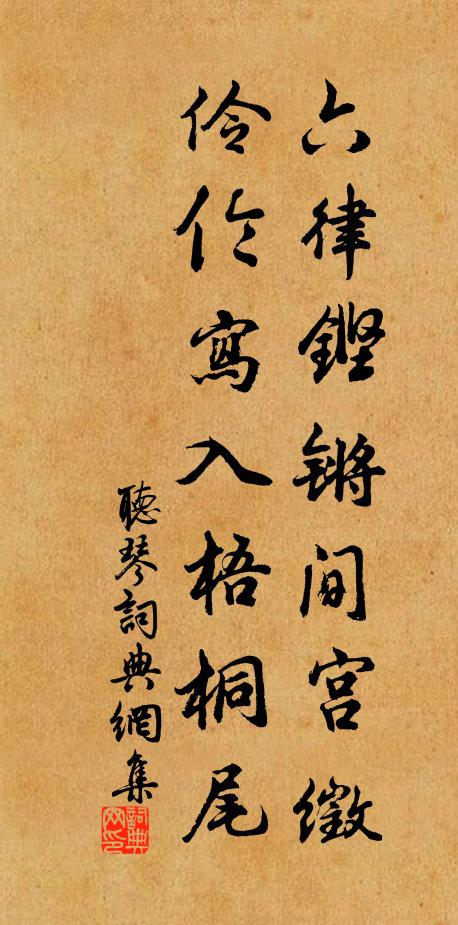 六律鏗鏘間宮徵
伶伦寫入梧桐尾
聽琴詞典網集
詞典网印